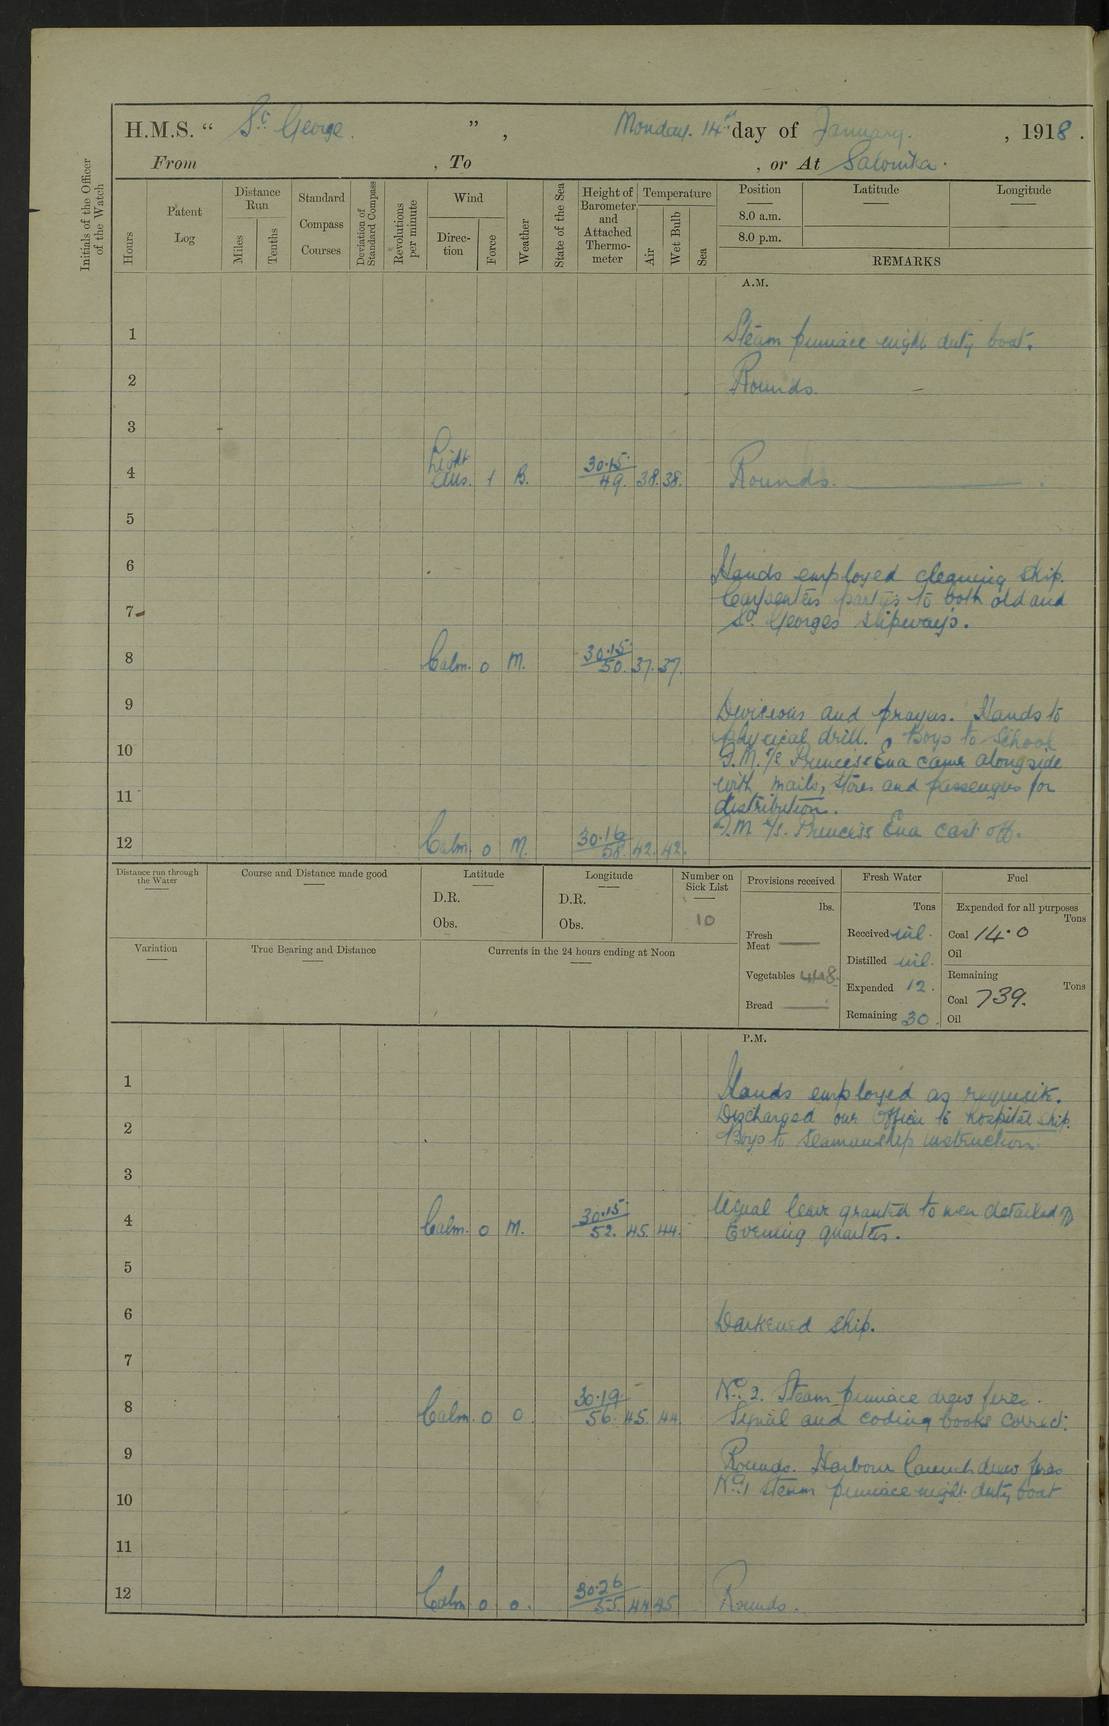 H.M.S. " St. George. ", Monday. 14th day of January. , 1918.
From , To , or At Salonika.
Initials of the Officer of the Watch
Hours
Patent Log
Distance Run
Miles
Tenths
Standard Compass Courses
Deviation of Standard Compass
Revolutions per minute
Wind
Direction
Force
Weather
State of the Sea
Height of Barometer and Attached Thermometer
Temperature
Air
Wet Bulb
Sea
Position
8.0 a.m.
8.0 p.m.
Latitude
Longitude
REMARKS
A.M.
1 Steam pinnace night duty boat.
2 Rounds.
3
4 Light airs. 1 B. 30.15. 49. 38. 38. Rounds.
5
6 Hands employed cleaning ship.
Carpenters partys to both old and
7 St. Georges slipways.
8 Calm. 0 M. 30.15. 50. 37. 37.
9 Divicions and prayers. Hands to
physical drill. Boys to School
10 Princess Ena came alongside
with mails, stores and passengers for
11 distribution.
12 Calm. 0 M. 30.16 58. 42. 42. Princess Ena cast off.
Distance run through the Water
Course and Distance made good
Latitude
D.R.
Obs.
Longitude
D.R.
Obs.
Number on Sick List
10
Provisions received
lbs.
Fresh Meat
Vegetables 448.
Bread
Fresh Water
Tons
Received nil.
Distilled nil.
Expended 12.
Remaining 30.
Fuel
Expended for all purposes
Tons
Coal 14.0
Oil
Remaining
Tons
Coal 739.
Oil
Variation
True Bearing and Distance
Currents in the 24 hours ending at Noon
P.M.
1 Hands employed as requisite.
Discharged one Officer to hospital ship.
2 Boys to Seamanship instruction.
3
4 Calm. 0 M. 30.15 52. 45. 44. Usual leave granted to men detailed off
Evening quarters.
5
6 Darkened ship.
7
8 Calm. 0 0 30.19. 56. 45. 44. No. 2. Steam pinnace drew fires.
Signal and coding books correct.
9 Rounds. Harbour launch drew fires
No. 1 steam pinnace night duty boat
10
11
12 Calm 0 0. 30.26 55. 44 45 Rounds.